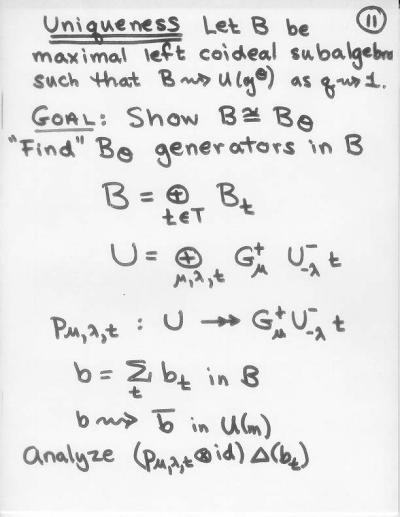 Uniqueness Let B be ⑪
maximal left coideal subalgebra
such that B ⇝ U(g^θ) as q ⇝ 1.
GOAL: Show B ≅ B_θ
"Find" B_θ generators in B
B = ⊕_{t∈T} B_t
U = ⊕_{μ,λ,t} G^+_μ U^-_{-λ} t
P_{μ,λ,t} : U ↠ G^+_μ U^-_{-λ} t
b = Σ_t b_t in B
b ⇝ b̄ in U(m)
Analyze (P_{μ,λ,t} ⊗ id) Δ(b_t)